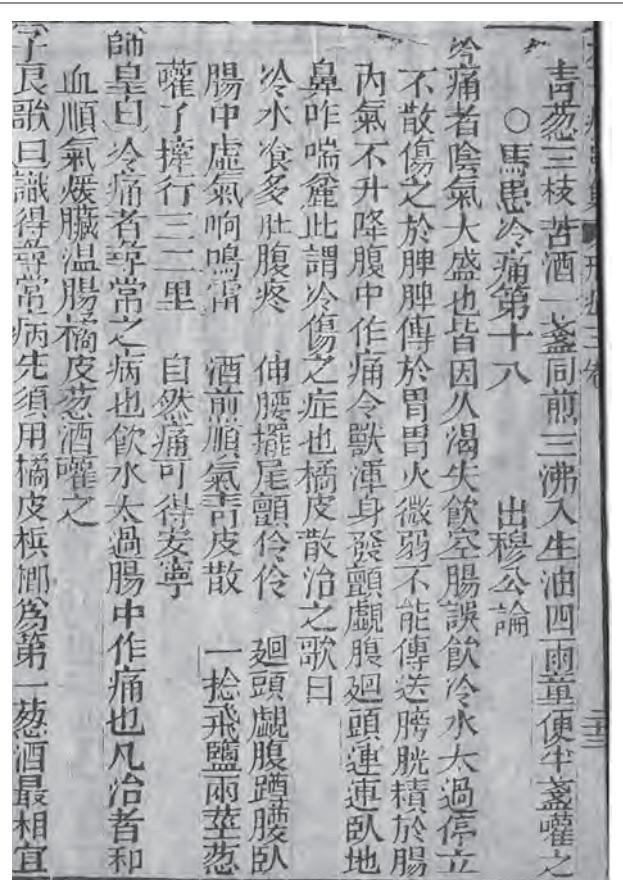 青葱三枝苦酒一盞同煎三沸入生油四兩童便半盞嚾之
○馬患冷痛第十八 出穆公論
冷痛者陰氣大盛也皆因久渴失飲空腸誤飲冷水太過停立
不散傷之於脾脾傳於胃胃火微弱不能傳送膀胱積於腸
內氣不升降腹中作痛令獸渾身發顫覷腹廻頭連連臥地
鼻咋喘麄此謂冷傷之症也橘皮散治之歌曰
冷水飡多肚腹疼 伸腰擺尾顫伶伶 廻頭覷腹蹲腰臥
腸中虛氣响鳴雷 酒煎順氣青皮散 一捻飛鹽兩莖葱
嚾了攆行三二里 自然痛可得安寧
師皇曰冷痛者尋常之病也飲水太過腸中作痛也凡治者和
血順氣煖臟温腸橘皮葱酒嚾之
子良歌曰識得尋常病先須用橘皮檳榔爲第一葱酒最相宜